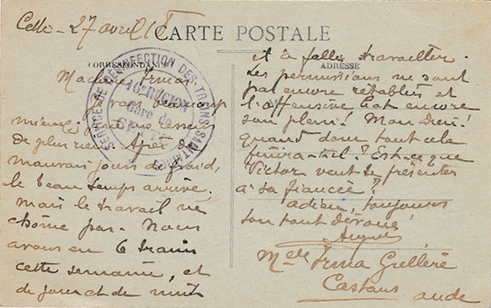 Cette - 27 avril 18
CARTE POSTALE
CORRESPONDANCE
ADRESSE
SERVICE DE DÉSINFECTION DES TRAINS SANITAIRES
Gare de
Madame Irma
beaucoup
mieux
de plus rien. Après de
mauvais jours de froid,
le beau temps arrive,
mais le travail ne
chôme pas. Nous
avons eu 6 trains
cette semaine, et
de jour et de nuit
il a fallu travailler.
Les permissions ne sont
pas encore rétablies et
l'offensive bat encore
son plein! Mon Dieu!
quand donc tout cela
finira-t-il? Est-ce que
Victor veut se présenter
à sa fiancée?
adieu, toujours
son tout dévoué
Melle Irma Grellère
Castans
aude